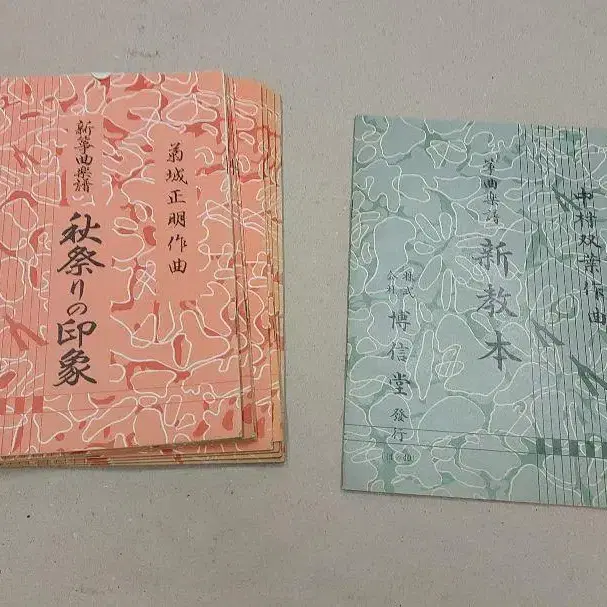 菊城正明作曲
新箏曲楽譜
秋祭りの印象
中村双葉作曲
箏曲楽譜
新教本
株式会社 博信堂 發行